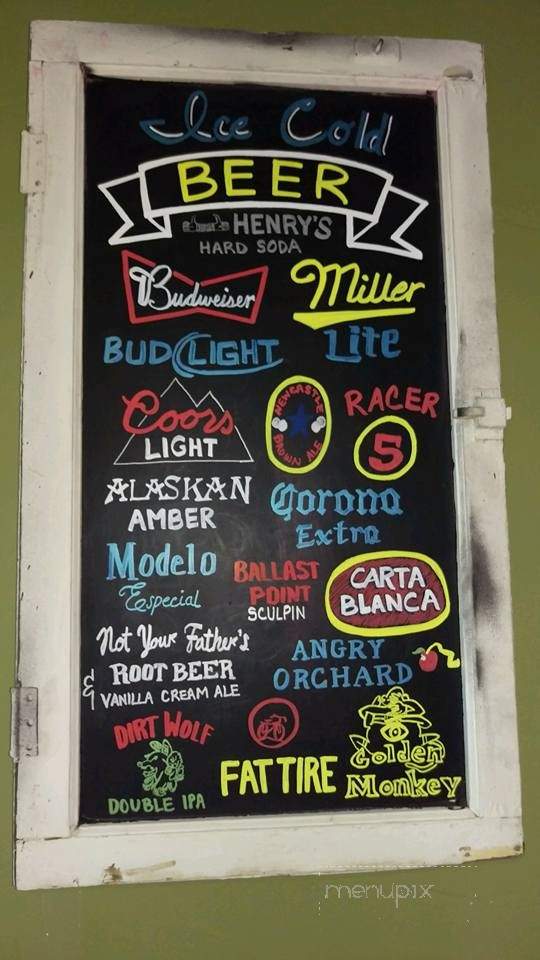 Ice Cold
BEER
HENRY'S
HARD SODA
Budweiser
Miller
Lite
BUD LIGHT
Coors
LIGHT
NEWCASTLE
BROWN ALE
RACER
5
ALASKAN
AMBER
Corona
Extra
Modelo
Especial
BALLAST
POINT
SCULPIN
CARTA
BLANCA
Not Your Father's
ROOT BEER
& VANILLA CREAM ALE
ANGRY
ORCHARD
DIRT WOLF
DOUBLE IPA
FAT TIRE
Golden
Monkey
menupix